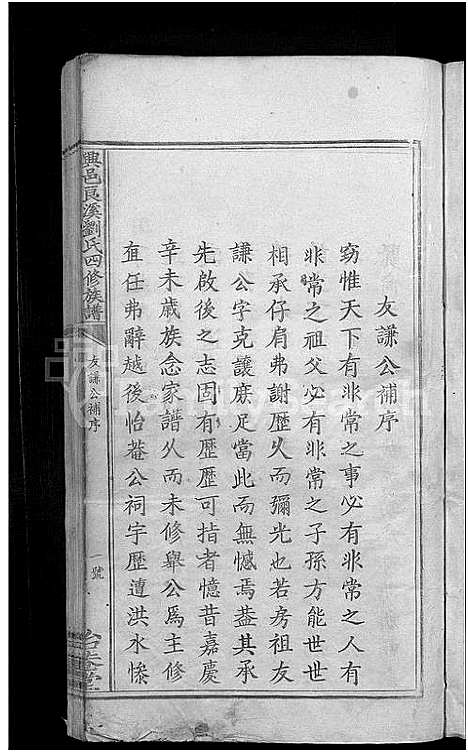 友謙公補序
竊惟天下有非常之事必有非常之人有
非常之祖父必有非常之子孫方能世世
相承仔肩弗謝歷久而彌光也若房祖友
謙公字克讓庶足當此而無憾焉葢其承
先啟後之志固有歷歷可指者憶昔嘉慶
辛未歲族念家譜久而未修舉公為主修
直任弗辭越後怡菴公祠宇歷遭洪水慘
興邑良溪劉氏四修族譜
友謙公補序
一號